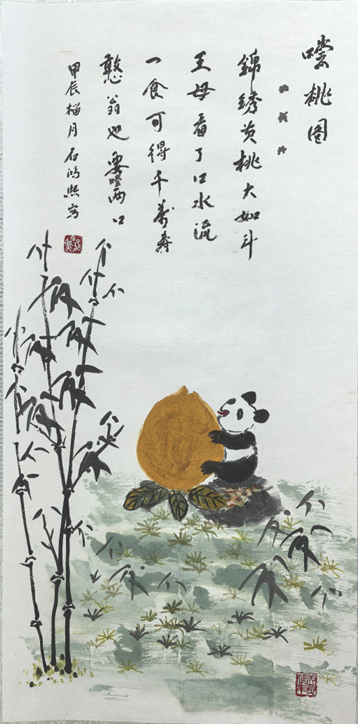 嚐桃图
錦绣黄桃大如斗
王母看了口水流
一食可得千萬寿
憨翁也要嚐两口
甲辰榴月石熙写